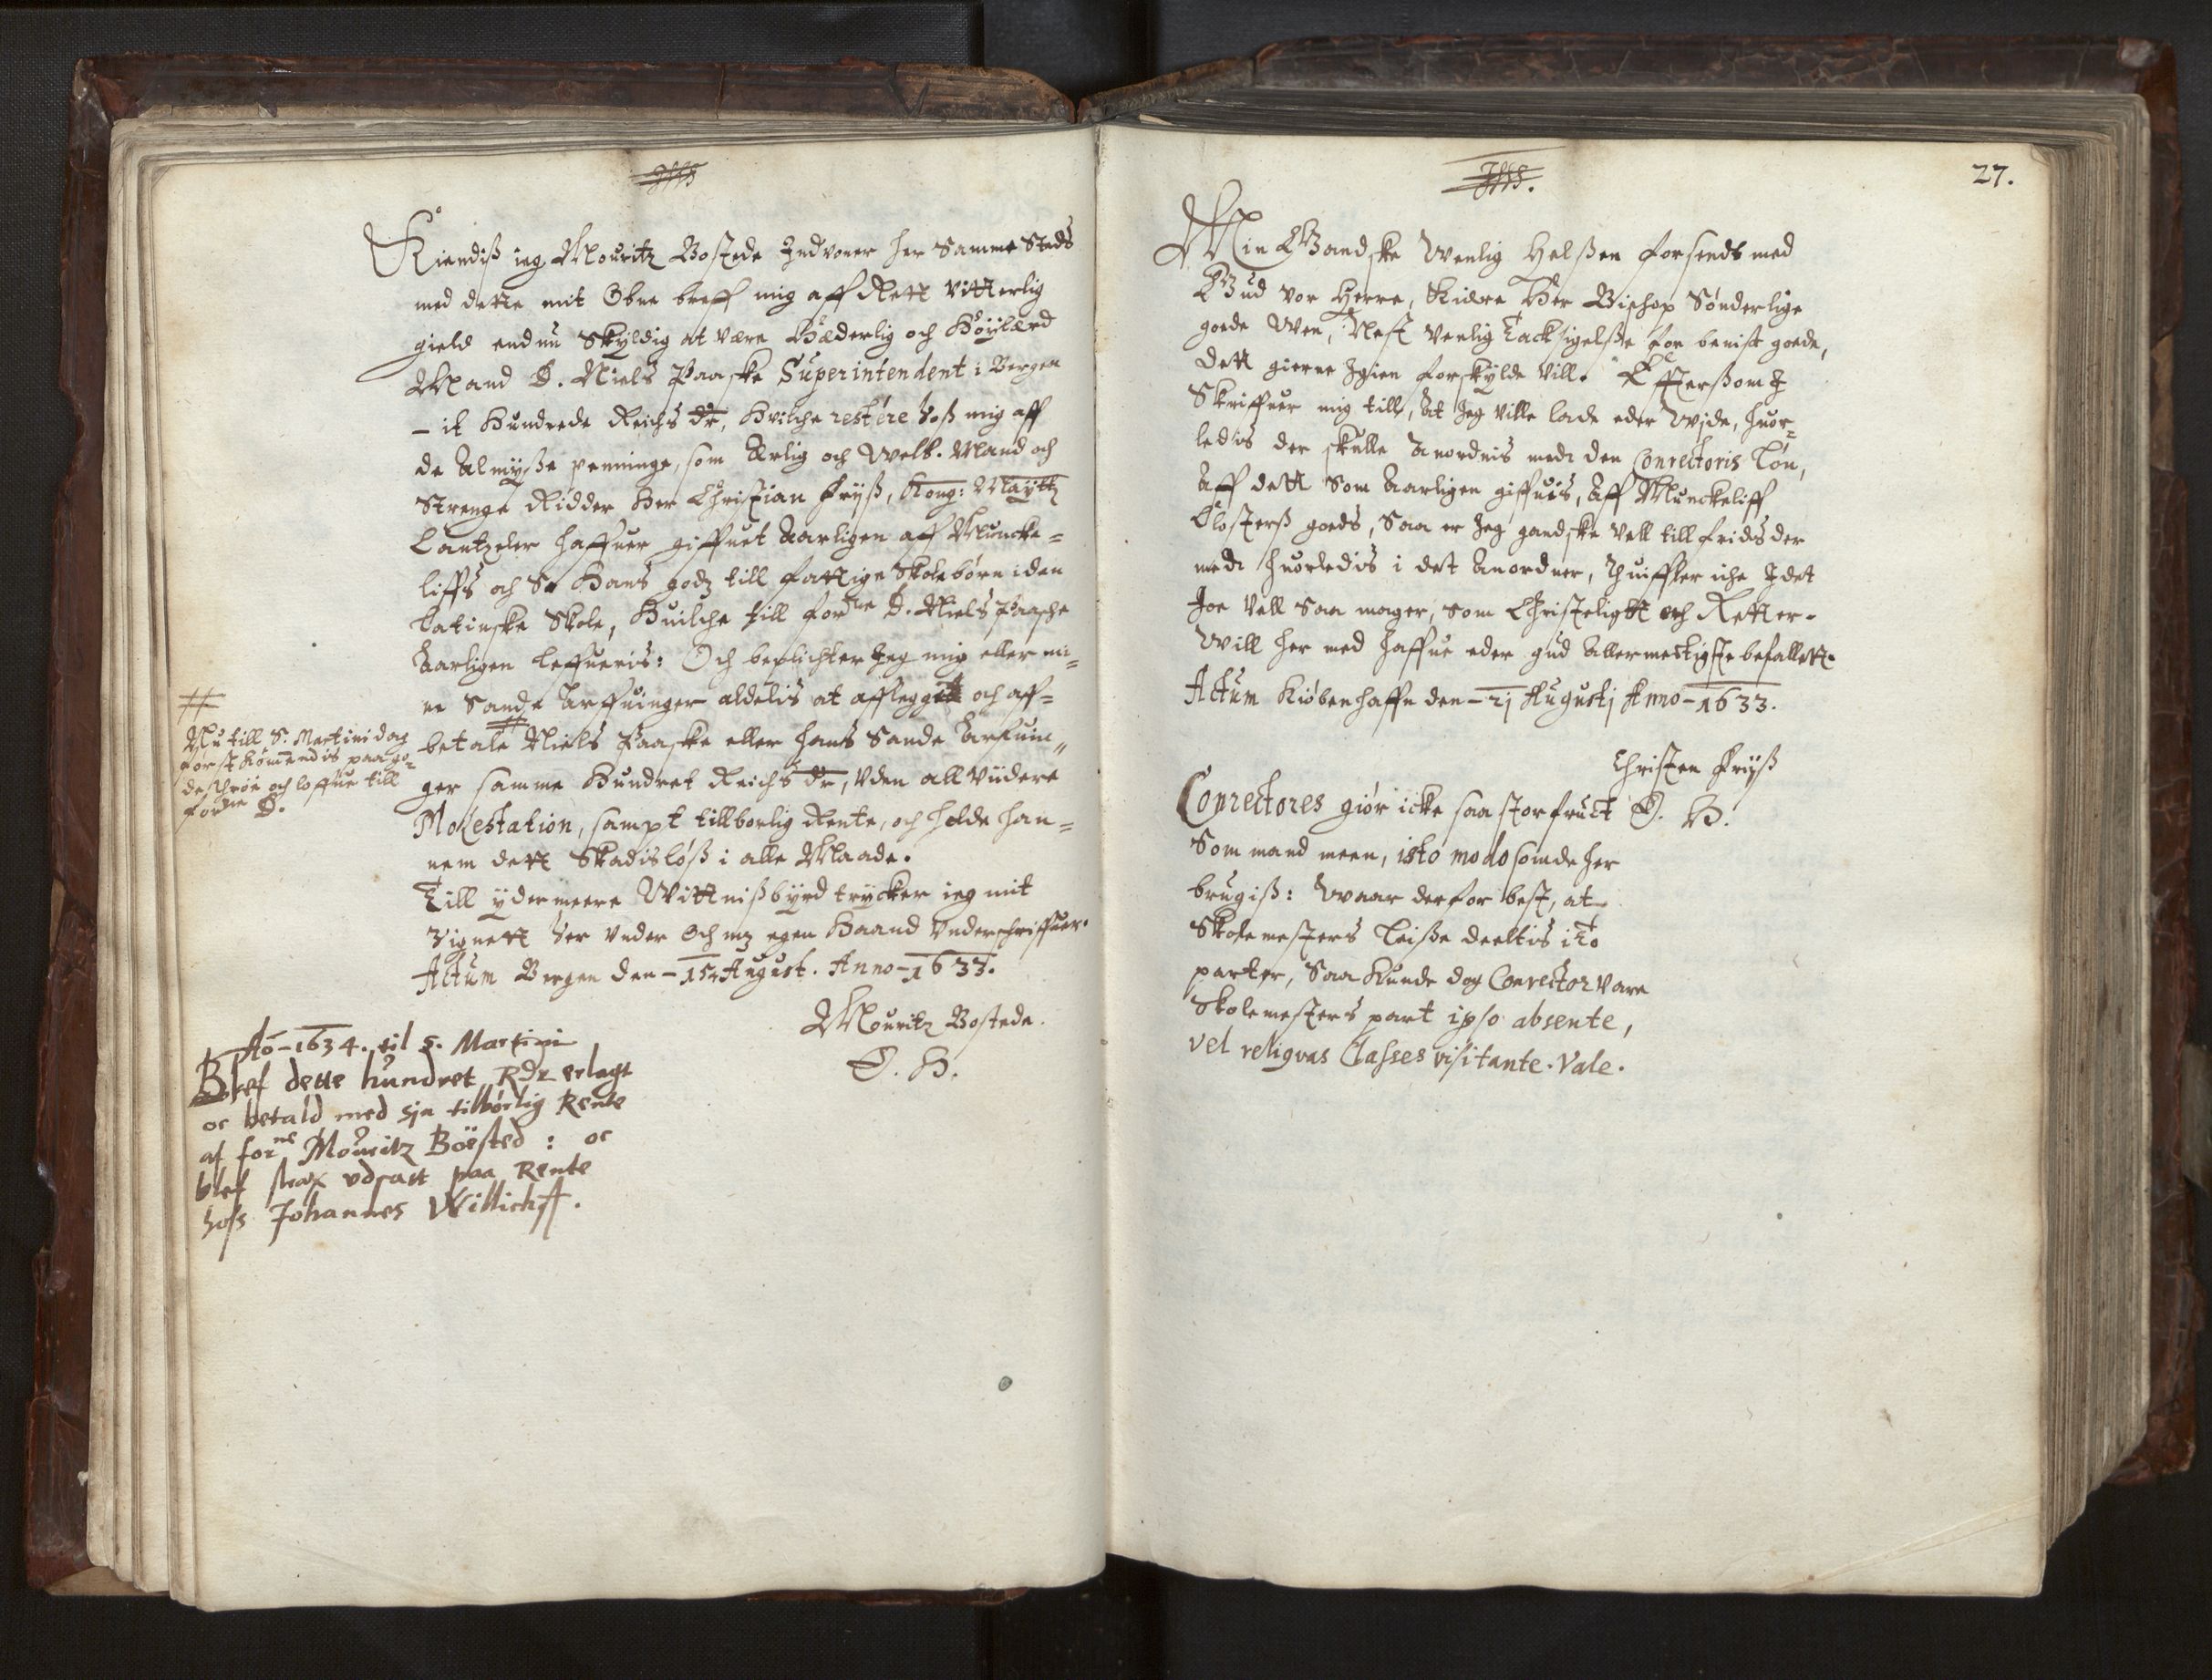 JHS
Kiendiß ieg Mouritz Bostede Indvoner her Samme Steds
med dette mit Obne breff mig aff Rett vitterlig
gield endnu Skyldig at være Hæderlig och Høylærd
Mand D. Niels Paaske Superintendent i Bergen
– it Hundrede Reichs dr, Hvilche restere hoß mig aff
de Almysse penninge, som Ærlig och Welb. Mand och
Strenge Ridder Her Christian Fryß, Kong: Maytt
Cantzeler haffuer giffuet Aarligen aff Muncke=
liffs och S. Hans godz till fattige Skolebørn i den
Latinske Skole, Huilche till forne D. Niels Paasche
Aarligen leffueris: Och beplichter Jeg mig eller mi=
ne Sande Arffuinger aldelis at afflegge och aff=
betale Niels Paaske eller hans Sande Arfuin„
ger samme Hundret Reichs dr, Uden all viidere
Molestation, sampt tillborlig Rente, och holde han=
nem dett Skadisløß i alle Maade.
Till ydermeere Vittnißbyrd trycker ieg mit
Zignett her under Och mz egen Haand Underschriffuer.
Actum Bergen den – 15 August. Anno – 1633.
Mouritz Bostede.
E. H.
#
Nu till S. Martini dag
forstkommendis paa go=
de throe och loffue till
forne D.
Ao – 1634. til S. Martini
Blef dette hundret Rdr erlagt
oc betald med sin tilbørlig Rente
af forne Mouritz Böested : oc
blef strax udsatt paa Rente
hoss Johannes Willichs.
27.
JHS.
Min Gandske Venlig Helsßen forsendt med
Gud vor Herre, Kiære Her Bischop Sønderlige
goede Ven, Nest venlig Tacksigelsße for bevist goede,
dett gierne Igien forskylde vill. Efftersßom I
Skriffuer mig till, At Jeg ville lade eder Vide, huor=
ledis der skulle Anordnis med den Conrectoris Løn,
Aff dett som Aarligen giffuis, Aff Munckeliff
Closterß goeds, Saa er Jeg gandske vell till frids der
med huorledis i det Anordner, Thuiffler iche I det
Joe vell saa mager, som Christeligtt och Rett er.
Will her med haffue eder gud Allermectigste befallett.
Actum Kiøbenhaffn den – 21 Augusti Anno – 1633.
Christen Fryß
E. H.
Conrectores giør icke saa stor fruct
Som mand meen, isto modo som de her
brugiß: Waar derfor best, at
Skolemesters Leiße deeltis i To
parter, Saa kunde dog Conrector vare
Skolemesters part ipso absente,
vel reliquas Classes visitante. Vale.